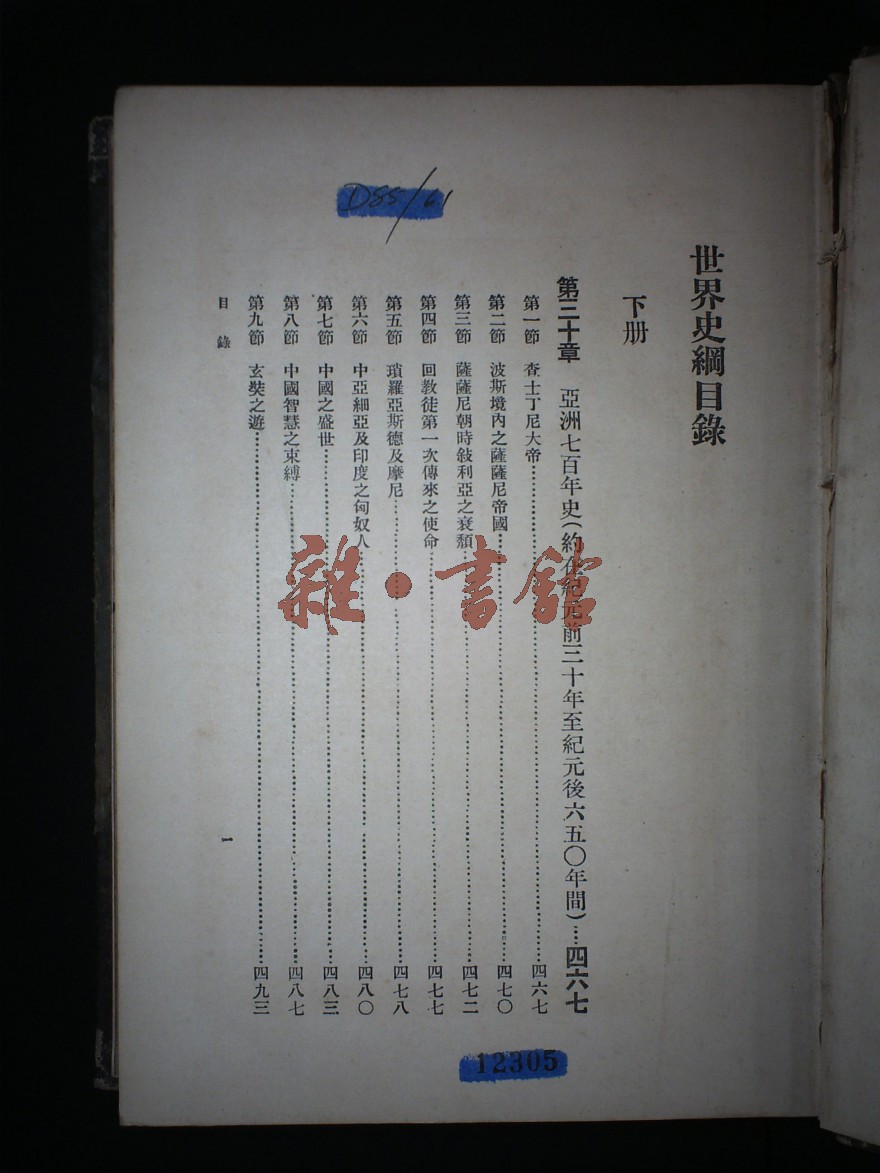 世界史綱目錄
下册
第三十章 亞洲七百年史(約在紀元前三十年至紀元後六五〇年間)…四六七
第一節 查士丁尼大帝……四六七
第二節 波斯境內之薩薩尼帝國……四七〇
第三節 薩薩尼朝時敍利亞之衰頹……四七二
第四節 回教徒第一次傳來之使命……四七七
第五節 瑣羅亞斯德及摩尼……四七八
第六節 中亞細亞及印度之匈奴人……四八〇
第七節 中國之盛世……四八三
第八節 中國智慧之束縛……四八七
第九節 玄奘之遊……四九三
目錄
一
D85/61
12305
雜·書館